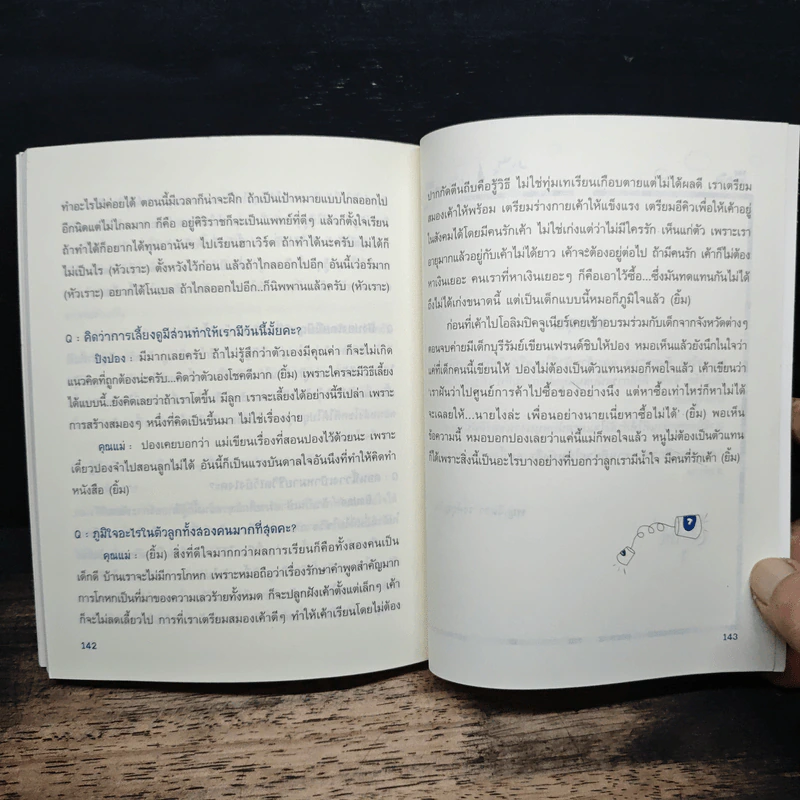 ทำอะไรไม่ค่อยได้ ตอนนี้มีเวลาก็น่าจะฝึก ถ้าเป็นเป้าหมายแบบไกลออกไป
อีกนิดแต่ไม่ไกลมาก ก็คือ อยู่ศิริราชก็จะเป็นแพทย์ที่ดีๆ แล้วก็ตั้งใจเรียน
ถ้าทำได้ก็อยากได้ทุนอานันฯ ไปเรียนฮาเวิร์ด ถ้าทำได้นะครับ ไม่ได้ก็
ไม่เป็นไร (หัวเราะ) ตั้งหวังไว้ก่อน แล้วถ้าไกลออกไปอีก อันนี้เว่อร์มาก
(หัวเราะ) อยากได้โนเบล ถ้าไกลออกไปอีก..ก็นิพพานแล้วครับ (หัวเราะ)
Q : คิดว่าการเลี้ยงดูมีส่วนทำให้เรามีวันนี้มั้ยคะ?
ปิงปอง : มีมากเลยครับ ถ้าไม่รู้สึกว่าตัวเองมีคุณค่า ก็จะไม่เกิด
แนวคิดที่ถูกต้องน่ะครับ...คิดว่าตัวเองโชคดีมาก (ยิ้ม) เพราะใครจะมีวิธีเลี้ยง
ได้แบบนี้..ยังคิดเลยว่าถ้าเราโตขึ้น มีลูก เราจะเลี้ยงได้อย่างนี้รึเปล่า เพราะ
การสร้างสมองๆ หนึ่งที่คิดเป็นขึ้นมา ไม่ใช่เรื่องง่าย
คุณแม่ : ปองเคยบอกว่า แม่เขียนเรื่องที่สอนปองไว้ด้วยนะ เพราะ
เดี๋ยวปองจำไปสอนลูกไม่ได้ อันนี้ก็เป็นแรงบันดาลใจอันนึงที่ทำให้คิดทำ
หนังสือ (ยิ้ม)
Q : ภูมิใจอะไรในตัวลูกทั้งสองคนมากที่สุดคะ?
คุณแม่ : (ยิ้ม) สิ่งที่ดีใจมากกว่าผลการเรียนก็คือทั้งสองคนเป็น
เด็กดี บ้านเราจะไม่มีการโกหก เพราะหมอถือว่าเรื่องรักษาคำพูดสำคัญมาก
การโกหกเป็นที่มาของความเลวร้ายทั้งหมด ก็จะปลูกฝังเค้าตั้งแต่เล็กๆ เค้า
ก็จะไม่ลดเลี้ยวไป การที่เราเตรียมสมองเค้าดีๆ ทำให้เค้าเรียนโดยไม่ต้อง
142
ปากกัดตีนถีบคือรู้วิธี ไม่ใช่ทุ่มเทเรียนเกือบตายแต่ไม่ได้ผลดี เราเตรียม
สมองเค้าให้พร้อม เตรียมร่างกายเค้าให้แข็งแรง เตรียมอีคิวเพื่อให้เค้าอยู่
ในสังคมได้โดยมีคนรักเค้า ไม่ใช่เก่งแต่ว่าไม่มีใครรัก เห็นแก่ตัว เพราะเรา
อายุมากแล้วอยู่กับเค้าไม่ได้ยาว เค้าจะต้องอยู่ต่อไป ถ้ามีคนรัก เค้าก็ไม่ต้อง
หาเงินเยอะ คนเราที่หาเงินเยอะๆ ก็คือเอาไว้ซื้อ...ซึ่งมันทดแทนกันไม่ได้
ถึงไม่ได้เก่งขนาดนี้ แต่เป็นเด็กแบบนี้หมอก็ภูมิใจแล้ว (ยิ้ม)
ก่อนที่เค้าไปโอลิมปิคจูเนียร์เคยเข้าอบรมร่วมกับเด็กจากจังหวัดต่างๆ
ตอนจบค่ายมีเด็กบุรีรัมย์เขียนเฟรนด์ชิบให้ปอง หมอเห็นแล้วยังนึกในใจว่า
แค่ที่เด็กคนนี้เขียนให้ ปองไม่ต้องเป็นตัวแทนหมอก็พอใจแล้ว เค้าเขียนว่า
เราฝันว่าไปศูนย์การค้าไปซื้อของอย่างนึง แต่หาซื้อเท่าไหร่ก็หาไม่ได้
จะเฉลยให้...'นายไงล่ะ เพื่อนอย่างนายเนี่ยหาซื้อไม่ได้' (ยิ้ม) พอเห็น
ข้อความนี้ หมอบอกปองเลยว่าแค่นี้แม่ก็พอใจแล้ว หนูไม่ต้องเป็นตัวแทน
ก็ได้เพราะสิ่งนี้เป็นอะไรบางอย่างที่บอกว่าลูกเรามีน้ำใจ มีคนที่รักเค้า (ยิ้ม)
143